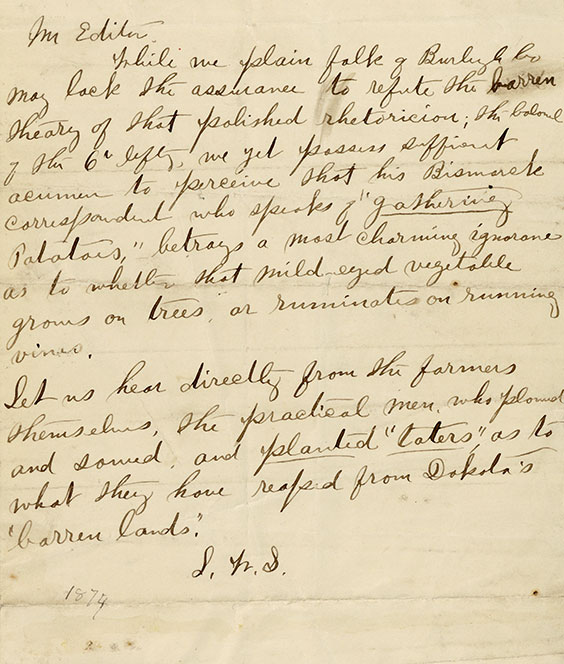 Mr Editor.
While we plain folk of Burleigh Co
may lack the assurance to refute the barren
theory of that polished rhetoricion; the colonel
of the 6th Infty, we yet possess suffient
acumen to perceive that his Bismarck
correspondent who speaks of "gathering
Potatoes," betrays a most charming ignorance
as to whether that mild-eyed vegetable
grows on trees, or ruminates on running
vines.
Let us hear directly from the farmers
themselves, the practical men, who plowed
and sowed, and planted "taters" as to
what they have reaped from Dakota's
"barren lands".
1874